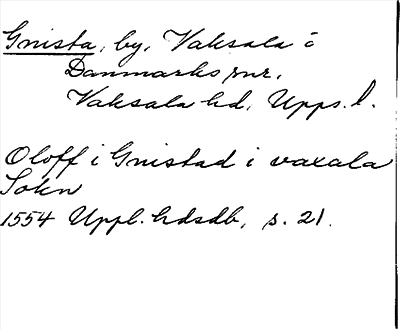 Gnista, by, Vaksala i
Danmarks snr,
Vaksala hd, Upps. l.
Oloff i Gnistad i vaxala
Sokn
1554 Uppl. hdsdb, s. 21.